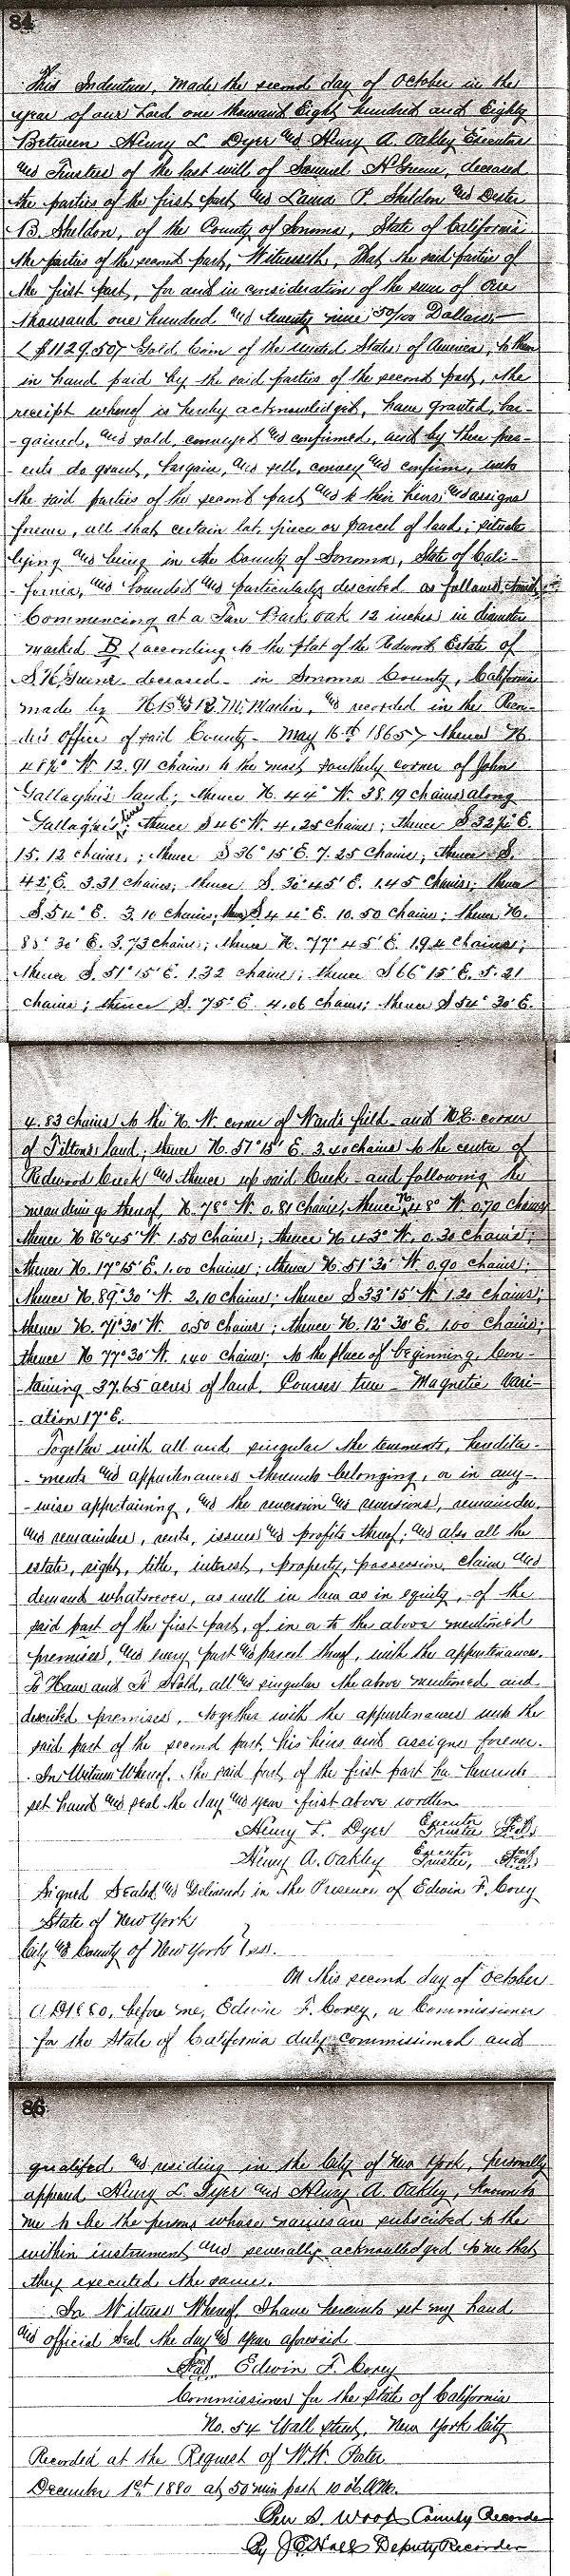 84
This Indenture, made the second day of October in the
year of our Lord one thousand Eight hundred and Eighty
Between Henry L Dyer and Henry A. Oakley Executors
and Trustees of the last will of Samuel H Greene, deceased
the parties of the first part and Laura P. Sheldon and Dexter
B. Sheldon, of the County of Sonoma, State of California
the parties of the second part, Witnesseth, That the said parties of
the first part, for and in consideration of the sum of One
thousand one hundred and twenty nine 50/100 Dollars,—
($1129.50) Gold Coin of the United States of America, to them
in hand paid by the said parties of the second part, the
receipt whereof is hereby acknowledged, have granted, bar-
-gained, and sold, conveyed and confirmed, and by these pres-
-ents do grant, bargain, and sell, convey and confirm, unto
the said parties of the second part and to their heirs and assigns
forever, all that certain lot, piece or parcel of land, situate
lying and being in the County of Sonoma, State of Cali-
-fornia, and bounded and particularly described as follows,
Commencing at a Tan Bark oak 12 inches in diameter
marked B (according to the plat of the Redwood Estate of
S. H. Greene deceased - in Sonoma County, California
made by H B and R. M. Martin, and recorded in the Recor-
der's Office of said County - May 16th 1865) thence N
48½° W. 12.91 chains to the most southerly corner of John
Gallagher's land; thence N. 44° W. 38.19 chains along
Gallagher's line thence S 46° W. 4.25 chains; thence S 32½° E.
15.12 chains; thence S 36° 15' E. 7.25 chains; thence S.
42° E. 3.31 chains; thence S. 30° 45' E. 1.45 chains; thence
S. 54° E. 3.10 chains; thence S 44° E. 10.50 chains; thence N.
85° 30' E. 3.73 chains; thence N. 77° 45' E. 1.94 chains;
thence S. 51° 15' E. 1.32 chains; thence S 66° 15' E. 5.21
chains; thence S. 75° E. 4.06 chains; thence S 54° 30' E.
4.83 chains to the N. W. corner of Ward's field - and N.E. corner
of Tilton's land; thence N. 57° 15' E 3.40 chains to the centre of
Redwood Creek and thence up said Creek - and following the
meanderings thereof, N. 78° W. 0.81 chains; thence N. 48° W 0.70 chains
thence N 86° 45' W 1.50 chains; thence N 43° W. 0.30 chains;
thence N. 17° 15' E. 1.00 chains; thence N. 51° 30' W 0.90 chains;
thence N. 89° 30' W. 2.10 chains; thence S 33° 15' W 1.20 chains;
thence N. 71° 30' W. 0.50 chains; thence N. 12° 30' E. 1.00 chains;
thence N 77° 30' W 1.40 chains; to the place of beginning. Con-
-taining 37.65 acres of land. Courses true - Magnetic Vari-
-ation 17° E.
Together with all and singular the tenements, heredita-
-ments and appurtenances thereunto belonging, or in any-
-wise appertaining, and the reversion and reversions, remainder,
and remainders, rents, issues and profits thereof; and also all the
estate, right, title, interest, property, possession, claim and
demand whatsoever, as well in law as in equity, of the
said part of the first part, of in or to the above mentioned
premises, and every part and parcel thereof, with the appurtenances.
To Have and To Hold, all and singular the above mentioned and
described premises, together with the appurtenances unto the
said part of the second part, his heirs and assigns forever.
In Witness Whereof, the said part of the first part ha hereunto
set hand and seal the day and year first above written
Henry L. Dyer Executor Trustee Seal
Henry A. Oakley Executor Trustee, Seal
Signed Sealed and Delivered in the Presence of Edwin F. Corey
State of New York
City and County of New York } ss.
On this second day of October
A.D 1880, before me, Edwin F. Corey, a Commissioner
for the State of California duly commissioned and
86
qualifed and residing in the City of New York, personally
appeared Henry L. Dyer and Henry A. Oakley, known to
me to be the persons whose names are subscribed to the
within instrument and severally acknowledged to me that
they executed the same.
In Witness Whereof, I have hereunto set my hand
and official Seal the day and year aforesaid
Seal Edwin F. Corey
Commissioner for the State of California
No. 54 Wall street, New York City
Recorded at the Request of W.H. Porter
December 1st 1880 at 50 min past 10 o'c. A.M.
Ben S. Wood County Recorder
By J E Hall Deputy Recorder